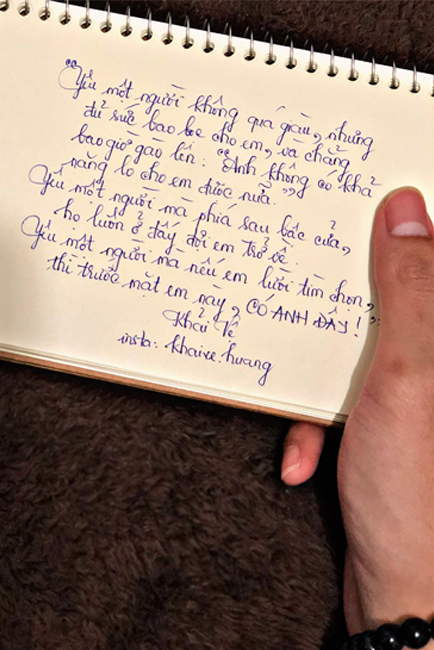 "Yêu một người không quá giàu, nhưng
đủ sức bao bọc cho em, và chẳng
bao giờ gào lên: "Anh không có khả
năng lo cho em được nữa."
Yêu một người mà phía sau bậc cửa,
họ luôn ở đấy đợi em trở về.
Yêu một người mà nếu em lười tìm chọn,
thì trước mặt em này, CÓ ANH ĐÂY!"
Khải Vệ
insta: khaive.huang